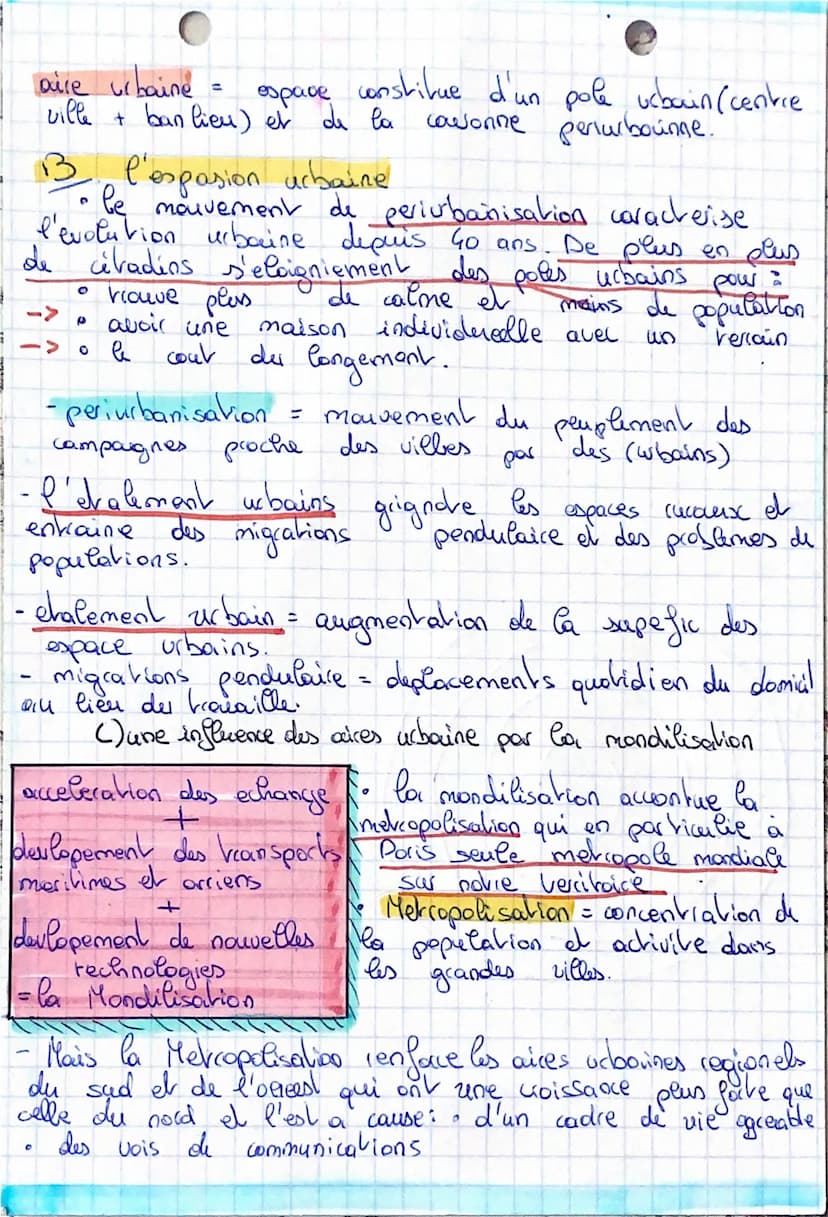 aire urbaine = espace constitue d'un pole urbain (centre
ville + banlieu) et de la couronne periurbainne.
B l'espasion urbaine
• le mouvement de periurbainisation caracterise
l'evolution urbaine depuis 40 ans. De plus en plus
de citadins s'eloigniement des poles urbains pour :
• trouve plus de calme et moins de population
--> • avoir une maison individureelle avec un terrain
--> • le cout du longement.
- periurbanisation = mouvement du peuplement des
campagnes proche des villes par des (urbains)
- l'etalement urbains grignote les espaces ruraux et
entraine des migrations pendulaire et des problemes de
populations.
- etalement urbain = augmentation de la supefic des
espace urbains.
- migrations pendulaire = deplacements quotidien du domicil
au lieu du travaille.
C) une influence des aires urbaine par la mondilisation
acceleration des echange
+
devlopement des transports
maritimes et arriens
+
devlopement de nouvelles
technologies
= la Mondilisation
• la mondilisation accontue la
metropolisation qui en particulie à
Paris seule metropole mondiale
sur notre territoire.
• Metropolisation = concentration de
la population et activite dans
les grandes villes.
- Mais la Metropolisatioo renforce les aires urbaines regionels
du sud et de l'ouest qui ont une croissance plus forte que
celle du nord et l'est a cause : • d'un cadre de vie agreable
• des vois de communications